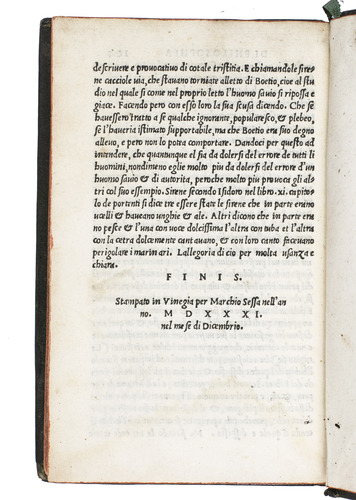 descrivere e provocativo di cotale tristitia. E chiamandole sire
ne cacciole via, che stavano torniate alletto di Boetio, cioe al stu
dio nel quale si come nel proprio letto l'huomo savio si ripossa e
giace. Facendo pero con esso loro la sua scusa dicendo. Che se
havessero tratto a se qualche ignorante, popularesco, & plebeo,
se l'haueria istimato supportabile, ma che Boetio era suo degno
allevo, e pero non lo potea comportare. Dandoci per questo ad
intendere, che quantunque el sia da dolersi del errore de tutti li
huomini, nondimeno eglie molto piu da dolersi del errore d'un
huomo savio & di autorita, perche molto piu provoca gli al
tri col suo essempio. Sirene secondo Isidoro nel libro .xi. capito
lo de portenti si dice tre essere state le sirene che in parte erano
ucelli & haveano unghie & ale. Altri dicono che in parte era
no pesce & l'una con voce dolcissima l'altra con tuba et l'altra
con la cetra dolcemente cantavano, & con loro canto facevano
perigolare i marinari. Lallegoria di cio per molta usanza e
chiara.
F I N I S.
Stampato in Vinegia per Marchio Sessa nell'an
no. M D X X X I.
nel mese di Dicembrio.